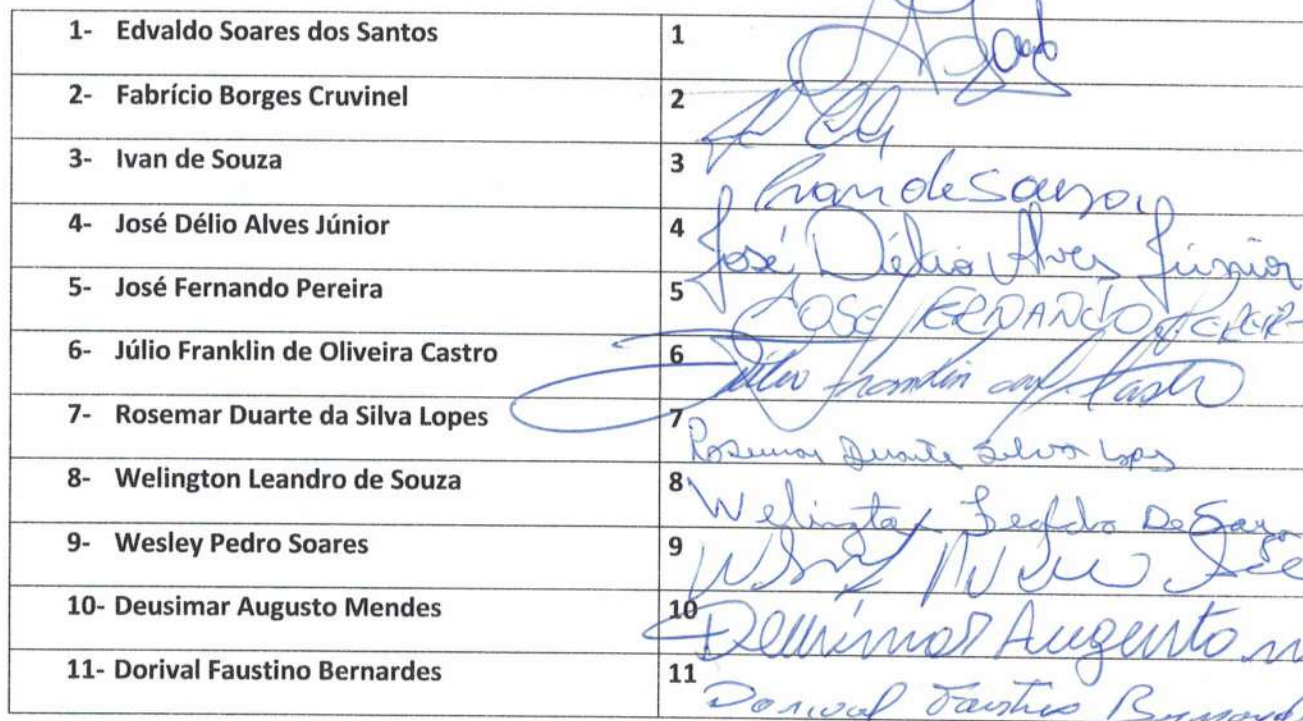 1- Edvaldo Soares dos Santos 1
2- Fabrício Borges Cruvinel 2
3- Ivan de Souza 3 Ivan de Souza
4- José Délio Alves Júnior 4 José Délio Alves Júnior
5- José Fernando Pereira 5 JOSE FERNANDO
6- Júlio Franklin de Oliveira Castro 6 Júlio Franklin Castro
7- Rosemar Duarte da Silva Lopes 7 Rosemar Duarte Silva Lopes
8- Welington Leandro de Souza 8 Welington Leandro De Souza
9- Wesley Pedro Soares 9
10- Deusimar Augusto Mendes 10 Deusimar Augusto
11- Dorival Faustino Bernardes 11 Dorival Faustino